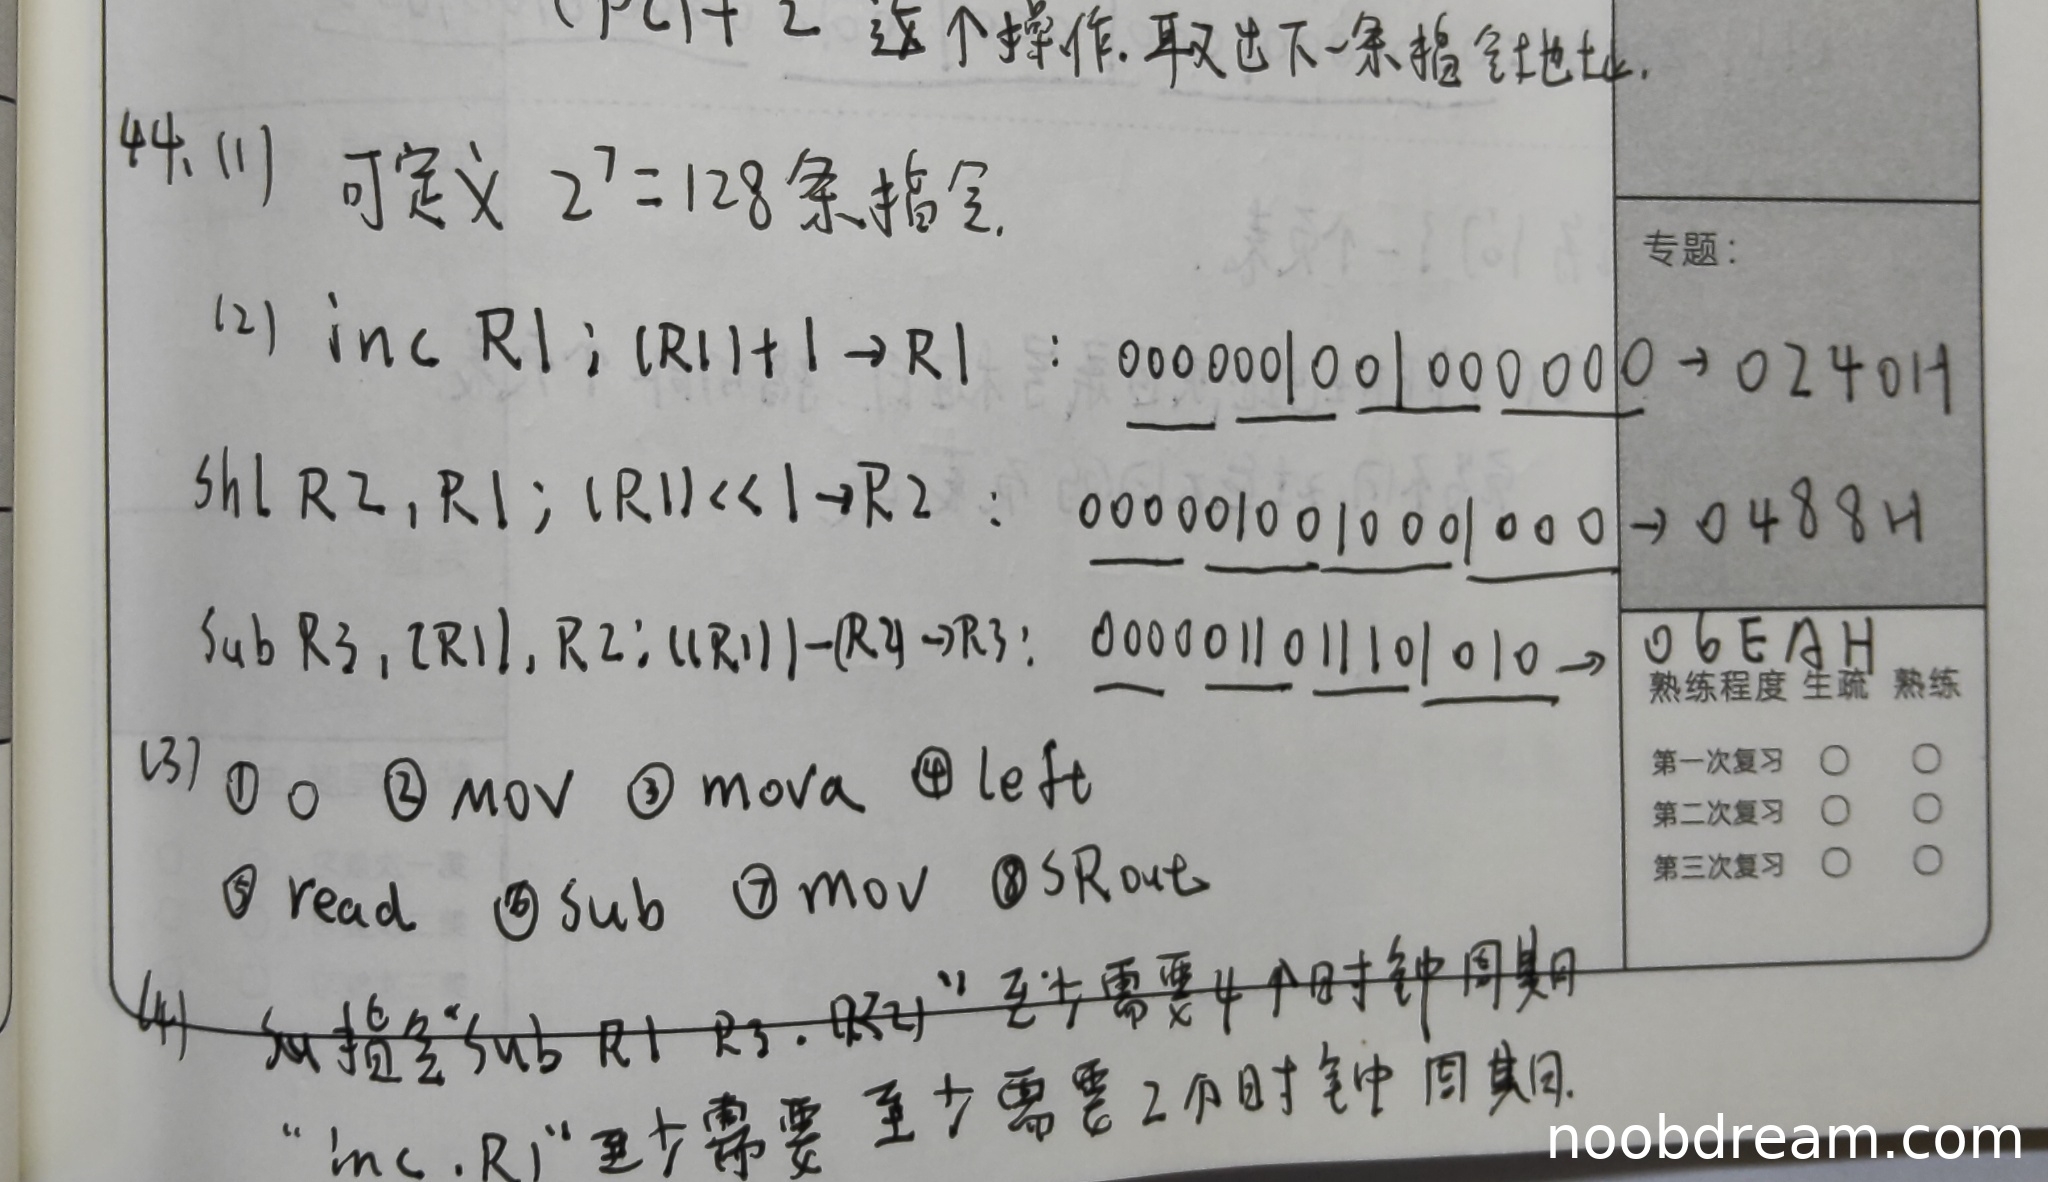 (PC)+2 这个操作.取出下一条指令地址.
44.(1) 可定义 2⁷=128条指令.
专题：
(2) inc R1；(R1)+1→R1 : 0000001001000000→0240H
shl R2,R1；(R1)<<1→R2 : 0000010010001000→0488H
Sub R3,[R1],R2；((R1))-(R2)→R3: 0000011011101010→ 06EAH
熟练程度 生疏 熟练
(3) ①0 ②mov ③mova ④left
第一次复习 ○ ○
第二次复习 ○ ○
第三次复习 ○ ○
⑤read ⑥Sub ⑦mov ⑧SRout
(4) 指令“Sub R1 R3.(R2)”至少需要4个时钟周期
“inc.R1”至少需要 至少需要2个时钟周期.
noobdream.com